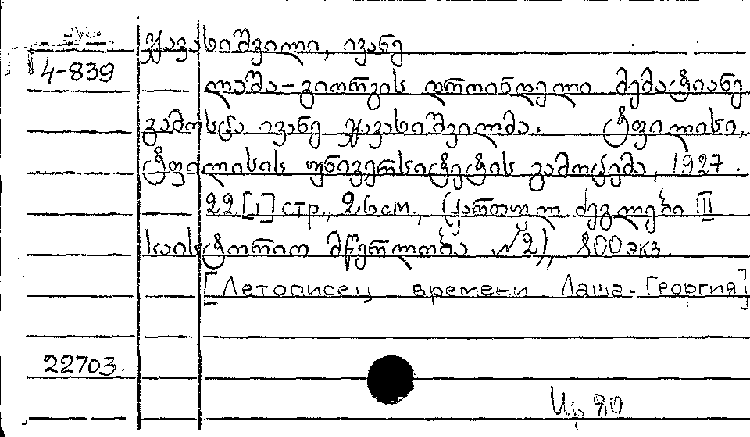 ჯავახიშვილი, ივანე
4-839
ლაშა-გიორგის დროინდელი მემატიანე
გამოსცა ივანე ჯავახიშვილმა. ტფილისი,
ტფილისის უნივერსიტეტის გამოცემა, 1927.
22[1] стр., 2,6см., (ქართულ ძეგლები III
საისტორიო მწერლობა №2), 800 экз.
[Летописец времени Лаша-Георгия]
22703
80